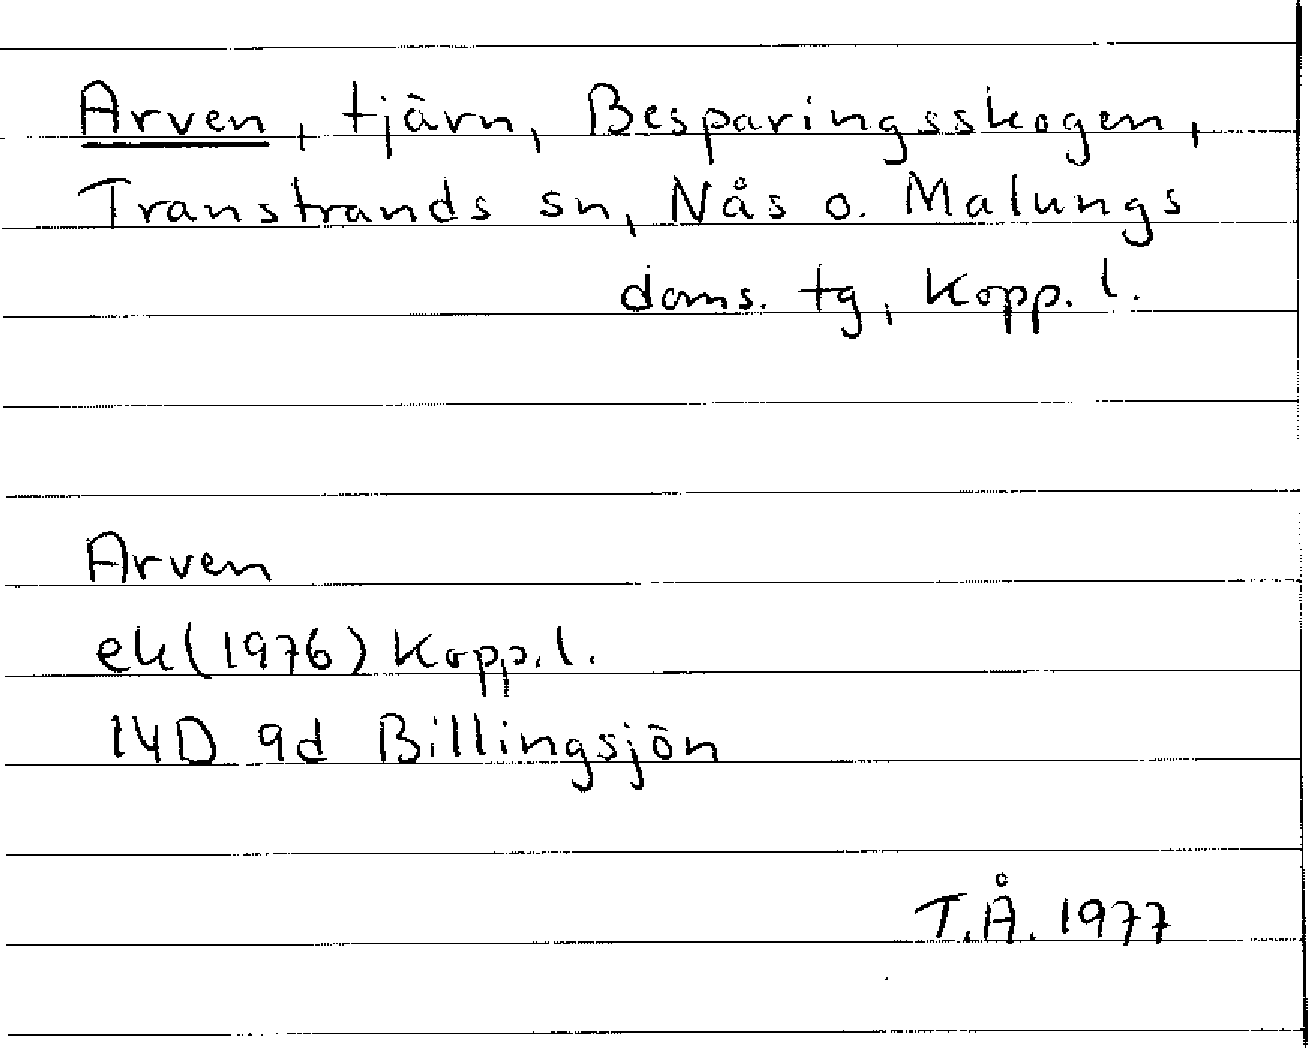 Arven, tjärn, Besparingsskogen,
Transtrands sn, Nås o. Malungs
doms. tg, Kopp. l.
Arven
ek (1976) Kopp. l.
14D 9d Billingsjön
T.Å. 1977